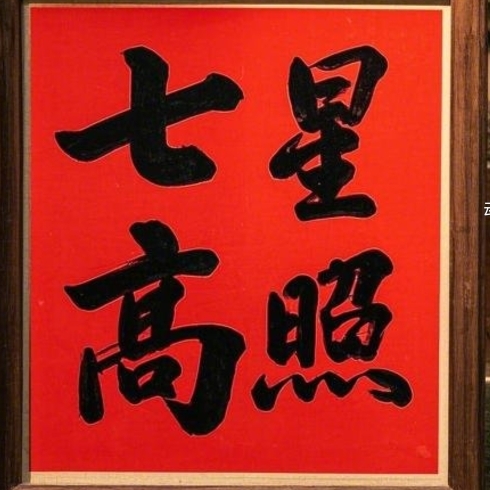 七星
高照